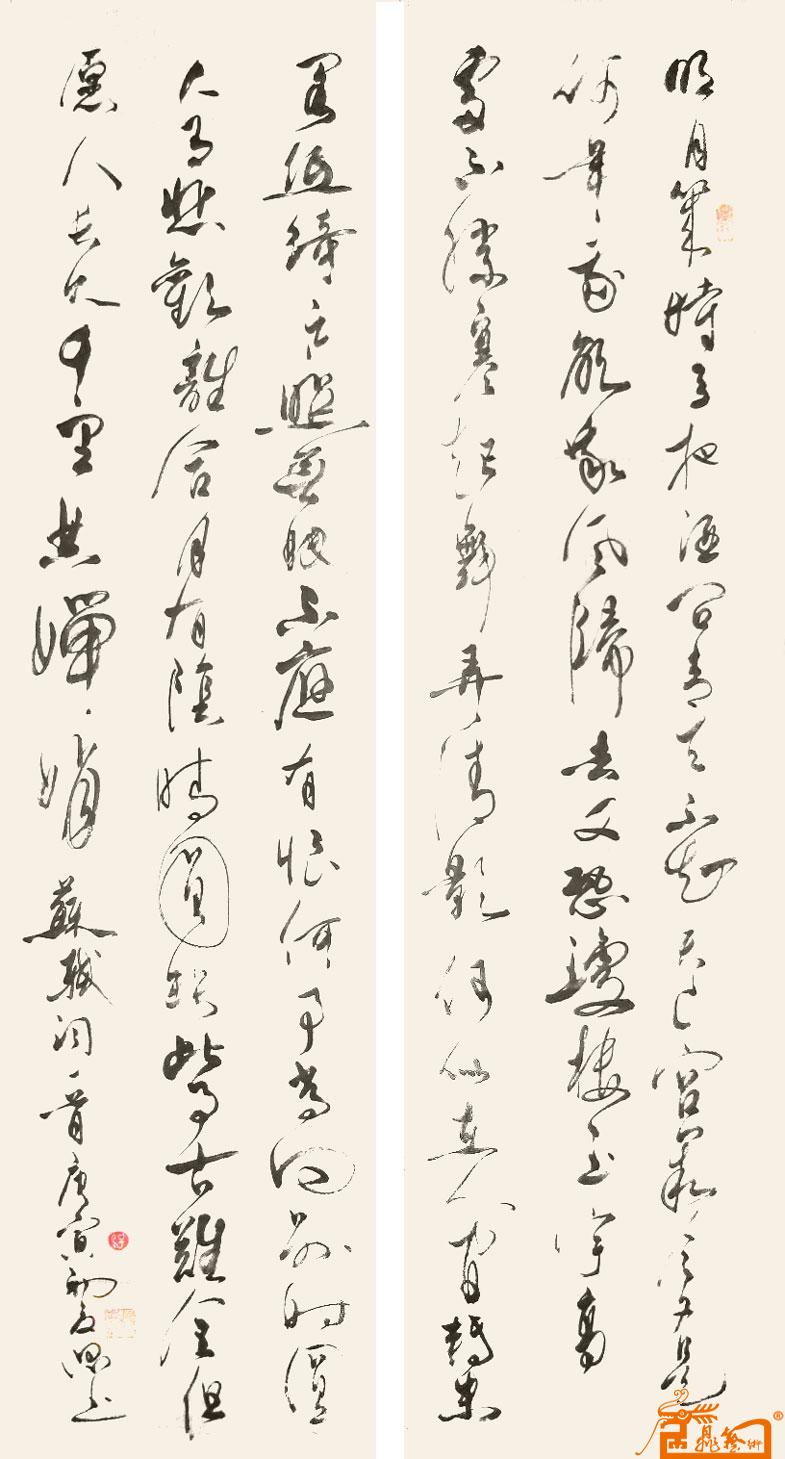 明月幾時有把酒問青天不知天上宮闕今夕是
何年我欲乘風歸去又恐瓊樓玉宇高
處不勝寒起舞弄清影何似在人間轉朱
閣低綺户照無眠不應有恨何事長向別時圓
人有悲歡離合月有陰晴圓缺此事古難全但
愿人長久千里共嬋娟 蘇軾詞一首庚寅初夏